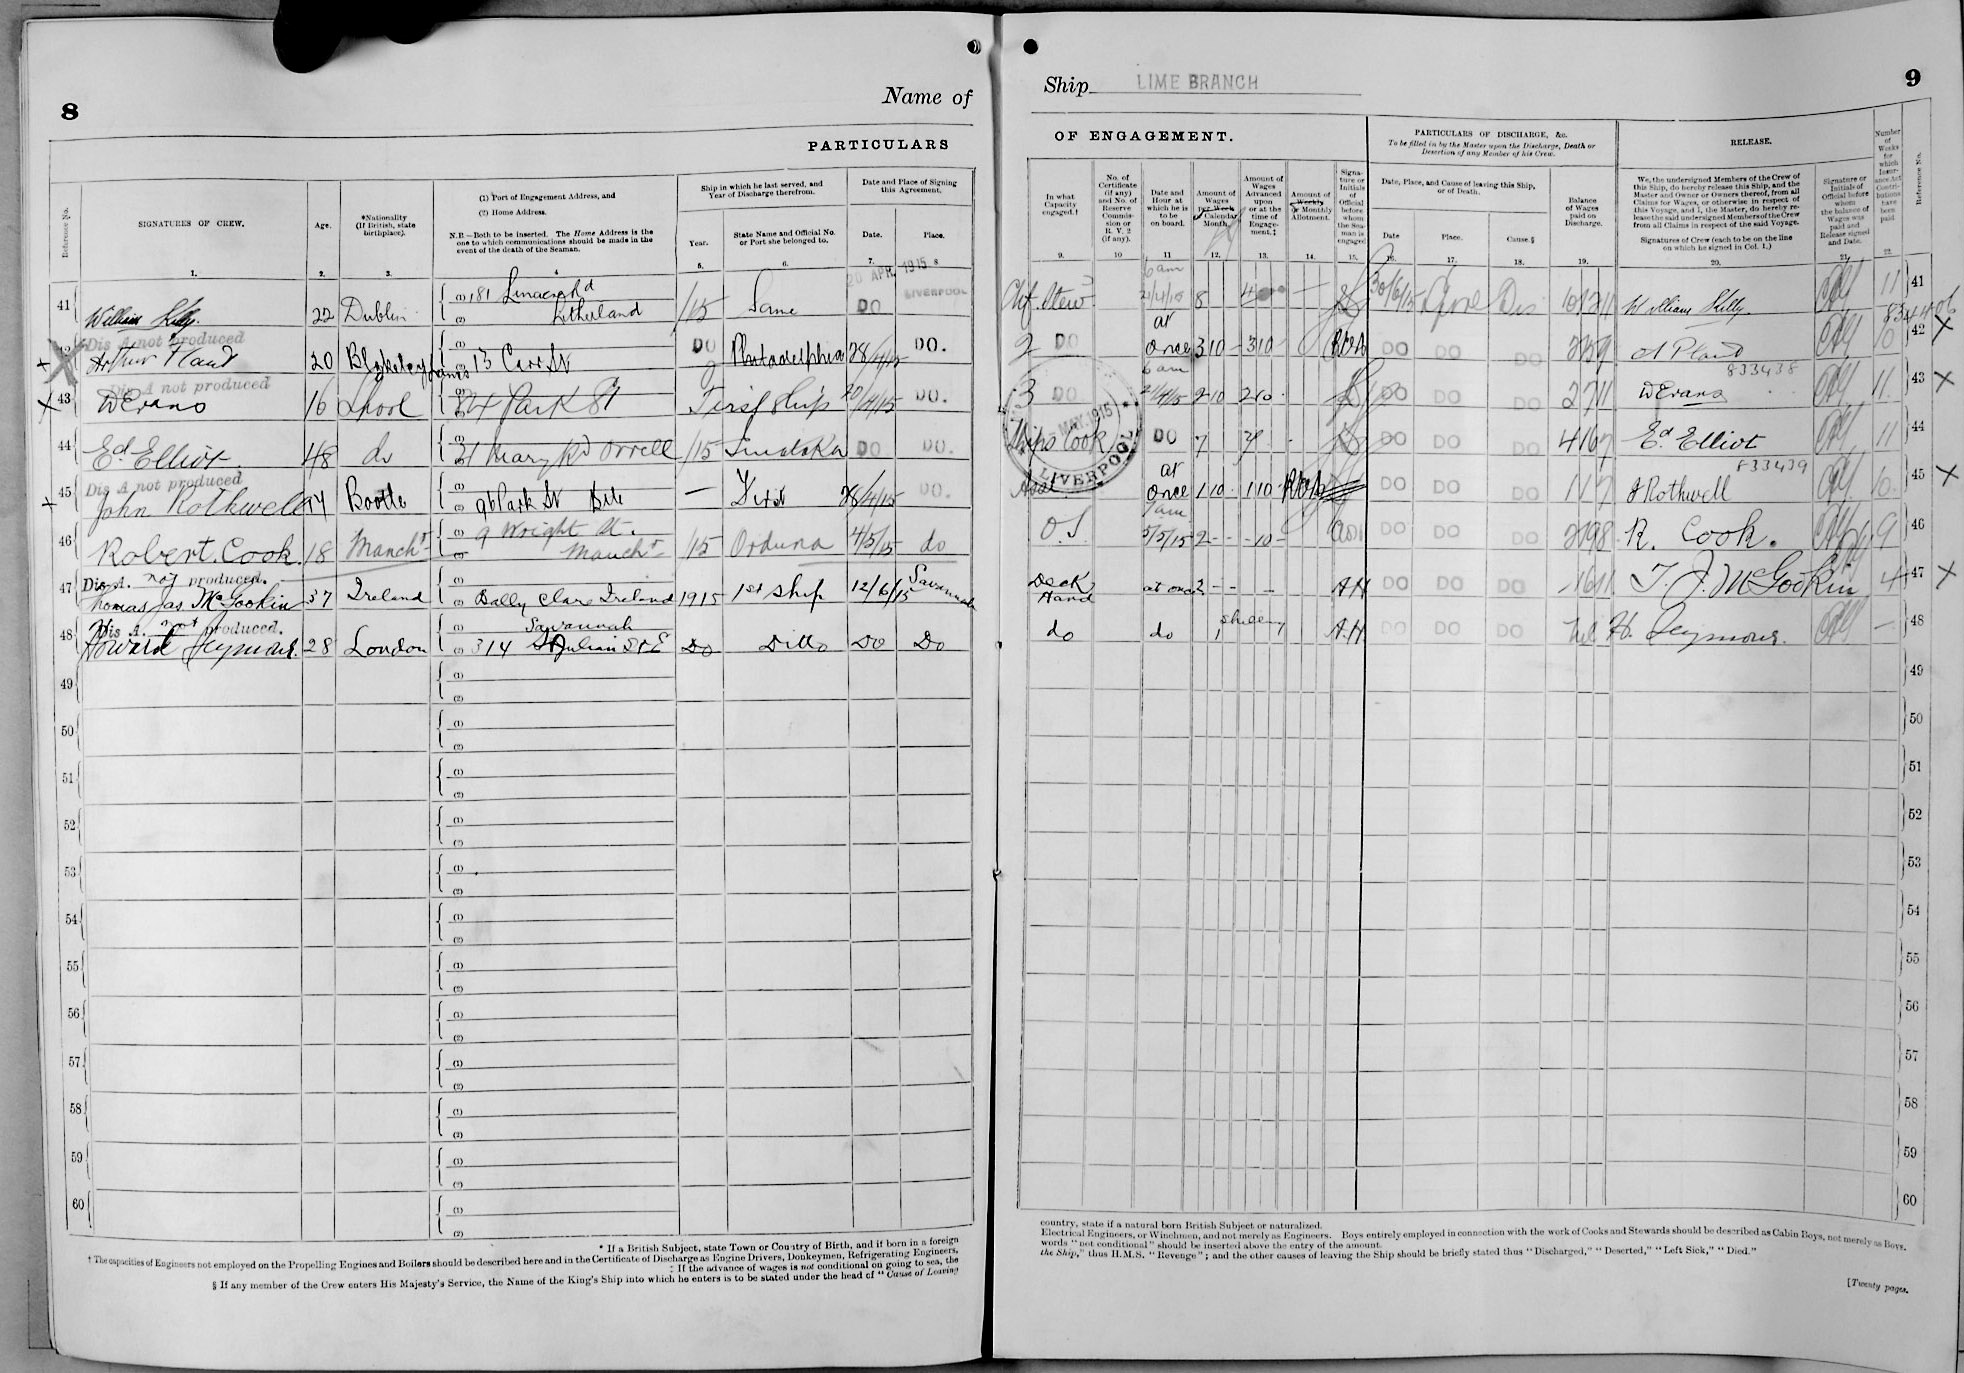 8
Name of
PARTICULARS
Reference No.
SIGNATURES OF CREW.
Age.
*Nationality
(If British, state
birthplace).
(1) Port of Engagement Address, and
(2) Home Address.
N.B.—Both to be inserted. The Home Address is the
one to which communications should be made in the
event of the death of the Seaman.
Ship in which he last served, and
Year of Discharge therefrom.
Year.
State Name and Official No.
or Port she belonged to.
Date and Place of Signing
this Agreement.
Date.
Place.
1. 2. 3. 4 5. 6. 7. 8
20 APR 1915 LIVERPOOL
41 William Kelly. 22 Dublin 181 Linacre Rd Litherland /15 Same DO
Dis A not produced
Arthur Pland 20 Blakeley Lancs 13 Carr St DO Philadelphia 28/4/15 DO.
Dis A not produced
43 W Evans 16 Lpool 24 Park St First ship 20/4/15 DO.
44 Ed. Elliot 48 do Mary Rd Orrell /15 DO DO.
Dis A not produced
45 John Rothwell 17 Bootle 96 Park St Btle — First 28/4/15 DO.
46 Robert. Cook. 18 Manchr 9 Wright St. Manchr /15 Orduna 4/5/15 do
Dis A. not produced.
47 Thomas Jas McGookin 37 Ireland Bally Clare Ireland 1915 1st ship 12/6/15 Savannah
Dis A. not produced.
48 Howard Seymour. 28 London Savannah 314 St Julian St E Do Ditto Do Do
49
50
51
52
53
54
55
56
57
58
59
60
* If a British Subject, state Town or Country of Birth, and if born in a foreign
† The capacities of Engineers not employed on the Propelling Engines and Boilers should be described here and in the Certificate of Discharge as Engine Drivers, Donkeymen, Refrigerating Engineers,
‡ If the advance of wages is not conditional on going to sea, the
§ If any member of the Crew enters His Majesty's Service, the Name of the King's Ship into which he enters is to be stated under the head of "Cause of Leaving
Ship LIME BRANCH
9
OF ENGAGEMENT.
PARTICULARS OF DISCHARGE, &c.
To be filled in by the Master upon the Discharge, Death or
Desertion of any Member of his Crew.
RELEASE.
Number
of
Weeks
for
which
Insur-
ance Act
Contri-
butions
have
been
paid
Reference No.
In what
Capacity
engaged.†
No. of
Certificate
(if any)
and No. of
Reserve
Commis-
sion or
R. V. 2
(if any).
Date and
Hour at
which he is
to be
on board.
Amount of
Wages
per Week
Calendar
Month.
Amount of
Wages
Advanced
upon
or at the
time of
Engage-
ment.‡
Amount of
Weekly
or Monthly
Allotment.
Signa-
ture or
Initials
of
Official
before
whom
the Sea-
man is
engaged
Date, Place, and Cause of leaving this Ship,
or of Death.
Date
Place.
Cause.§
Balance
of Wages
paid on
Discharge.
We, the undersigned Members of the Crew of
this Ship, do hereby release this Ship, and the
Master and Owner or Owners thereof, from all
Claims for Wages, or otherwise in respect of
this Voyage, and I, the Master, do hereby re-
lease the said undersigned Members of the Crew
from all Claims in respect of the said Voyage.
Signatures of Crew (each to be on the line
on which he signed in Col. 1.)
Signature or
Initials of
Official before
whom
the balance of
Wages was
paid and
Release signed
and Date.
9. 10 11 12. 13. 14. 15. 16. 17. 18. 19. 20. 21. 22.
Chf. Stew 6 am 21/4/15 8 30/6/15 Lpool Dis William Kelly 11 41
2 DO at once 3 10 - 3 10 - DO DO DO A Pland 10 42
833438
3 DO 6 am 21/4/15 2 10 2 10 DO DO DO 2 7 11 W Evans 11. 43
MAY. 1915
LIVERPOOL
Ships Cook DO 7 DO DO DO 4 16 7 Ed. Elliot 11 44
833439
Asst at once 1 10 - 1 10 - DO DO DO 1 1 7 J Rothwell 10. 45
O.S. 7am 5/5/15 2 - - DO DO DO R. Cook. 9 46
Deck Hand at once A H DO DO DO T. J. McGookin 4 47
do do 1 shilling A.H DO DO DO H. Seymour. — 48
49
50
51
52
53
54
55
56
57
58
59
60
country, state if a natural born British Subject or naturalized.
Electrical Engineers, or Winchmen, and not merely as Engineers. Boys entirely employed in connection with the work of Cooks and Stewards should be described as Cabin Boys, not merely as Boys.
words "not conditional" should be inserted above the entry of the amount.
the Ship," thus H.M.S. "Revenge"; and the other causes of leaving the Ship should be briefly stated thus "Discharged," "Deserted," "Left Sick," "Died."
[Twenty pages.